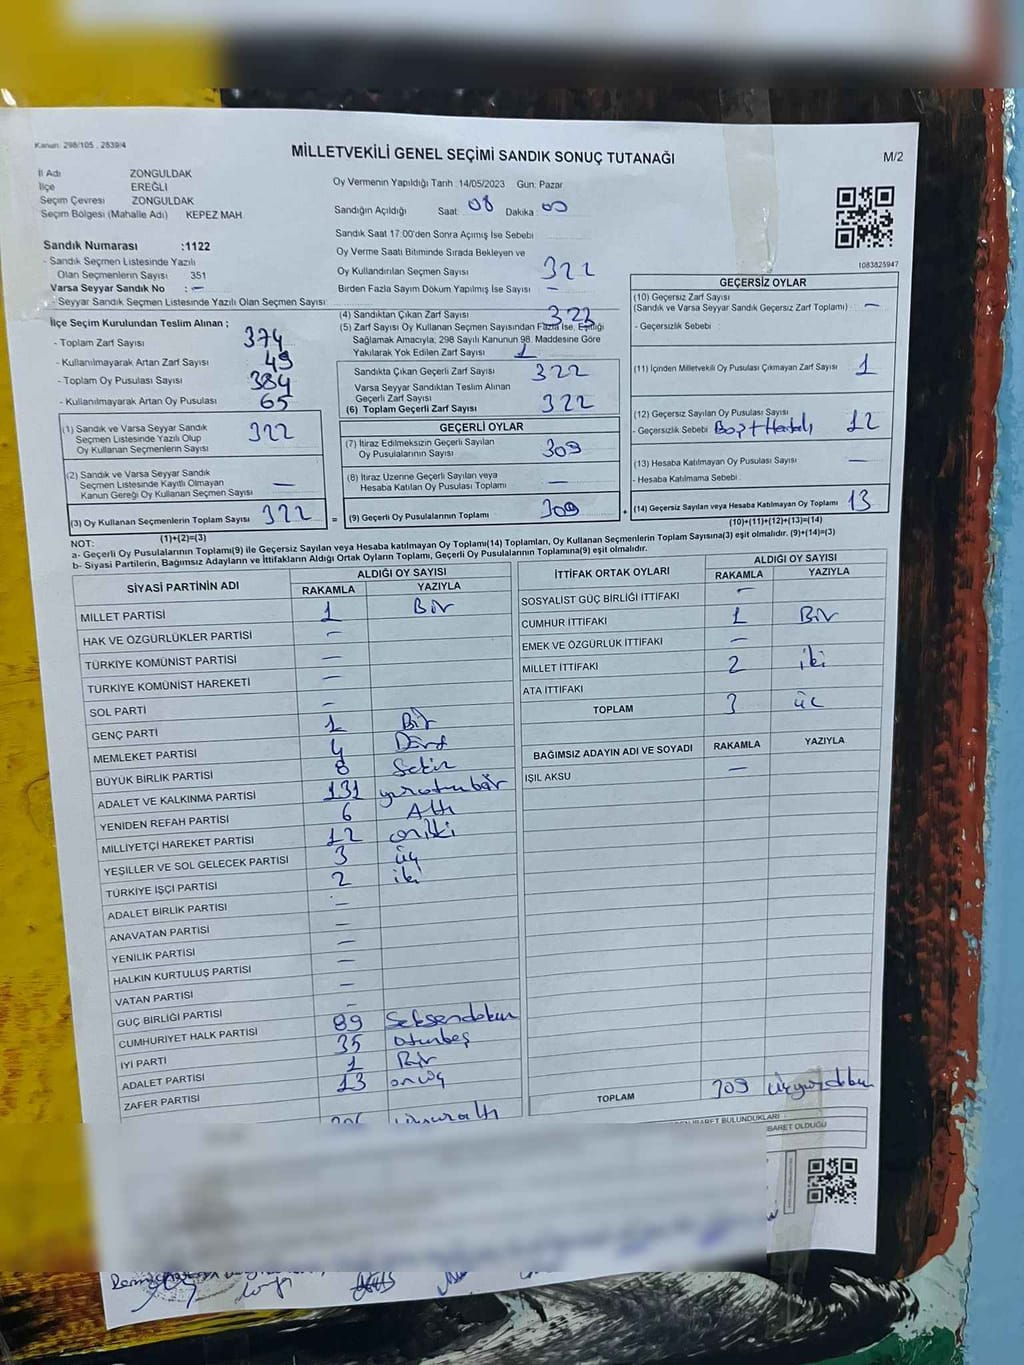 Kanun: 298/105 , 2839/4
MİLLETVEKİLİ GENEL SEÇİMİ SANDIK SONUÇ TUTANAĞI
M/2
İl Adı ZONGULDAK
İlçe EREĞLİ
Seçim Çevresi ZONGULDAK
Seçim Bölgesi (Mahalle Adı) KEPEZ MAH
Oy Vermenin Yapıldığı Tarih :14/05/2023 Gün: Pazar
Sandığın Açıldığı Saat: 08 Dakika: 00
Sandık Saat 17:00'den Sonra Açımış İse Sebebi
Sandık Numarası :1122
- Sandık Seçmen Listesinde Yazılı
Olan Seçmenlerin Sayısı 351
Varsa Seyyar Sandık No : —
- Seyyar Sandık Seçmen Listesinde Yazılı Olan Seçmen Sayısı:
Oy Verme Saati Bitiminde Sırada Bekleyen ve
Oy Kullandırılan Seçmen Sayısı 322
Birden Fazla Sayım Döküm Yapılmış İse Sayısı —
1083825947
İlçe Seçim Kurulundan Teslim Alınan ;
- Toplam Zarf Sayısı 374
- Kullanılmayarak Artan Zarf Sayısı 49
- Toplam Oy Pusulası Sayısı 384
- Kullanılmayarak Artan Oy Pusulası 65
(1) Sandık ve Varsa Seyyar Sandık
Seçmen Listesinde Yazılı Olup
Oy Kullanan Seçmenlerin Sayısı 322
(2) Sandık ve Varsa Seyyar Sandık
Seçmen Listesinde Kayıtlı Olmayan
Kanun Gereği Oy Kullanan Seçmen Sayısı —
(3) Oy Kullanan Seçmenlerin Toplam Sayısı 322 =
(1)+(2)=(3)
(4) Sandıktan Çıkan Zarf Sayısı 323
(5) Zarf Sayısı Oy Kullanan Seçmen Sayısından Fazla İse, Eşitliği
Sağlamak Amacıyla; 298 Sayılı Kanunun 98. Maddesine Göre
Yakılarak Yok Edilen Zarf Sayısı 1
Sandıkta Çıkan Geçerli Zarf Sayısı 322
Varsa Seyyar Sandıktan Teslim Alınan
Geçerli Zarf Sayısı
(6) Toplam Geçerli Zarf Sayısı 322
GEÇERLİ OYLAR
(7) İtiraz Edilmeksizin Geçerli Sayılan
Oy Pusulasının Sayısı 309
(8) İtiraz Üzerine Geçerli Sayılan veya
Hesaba Katılan Oy Pusulası Toplamı —
(9) Geçerli Oy Pusulalarının Toplamı 309 +
GEÇERSİZ OYLAR
(10) Geçersiz Zarf Sayısı
(Sandık ve Varsa Seyyar Sandık Geçersiz Zarf Toplamı) —
- Geçersizlik Sebebi
(11) İçinden Milletvekili Oy Pusulası Çıkmayan Zarf Sayısı 1
(12) Geçersiz Sayılan Oy Pusulası Sayısı
- Geçersizlik Sebebi Boş+Hatalı 12
(13) Hesaba Katılmayan Oy Pusulası Sayısı —
- Hesaba Katılmama Sebebi
(14) Geçersiz Sayılan veya Hesaba Katılmayan Oy Toplamı 13
(10)+(11)+(12)+(13)=(14)
NOT:
a- Geçerli Oy Pusulalarının Toplamı(9) ile Geçersiz Sayılan veya Hesaba katılmayan Oy Toplamı(14) Toplamları, Oy Kullanan Seçmenlerin Toplam Sayısına(3) eşit olmalıdır. (9)+(14)=(3)
b- Siyasi Partilerin, Bağımsız Adayların ve İttifakların Aldığı Ortak Oyların Toplamı, Geçerli Oy Pusulalarının Toplamına(9) eşit olmalıdır.
SİYASİ PARTİNİN ADI ALDIĞI OY SAYISI
RAKAMLA YAZIYLA
MİLLET PARTİSİ 1 Bir
HAK VE ÖZGÜRLÜKLER PARTİSİ —
TÜRKİYE KOMÜNİST PARTİSİ —
TÜRKİYE KOMÜNİST HAREKETİ —
SOL PARTİ —
GENÇ PARTİ 1 Bir
MEMLEKET PARTİSİ 4 Dört
BÜYÜK BİRLİK PARTİSİ 8 Sekiz
ADALET VE KALKINMA PARTİSİ 131 yüzotuzbir
YENİDEN REFAH PARTİSİ 6 Altı
MİLLİYETÇİ HAREKET PARTİSİ 12 oniki
YEŞİLLER VE SOL GELECEK PARTİSİ 3 üç
TÜRKİYE İŞÇİ PARTİSİ 2 iki
ADALET BİRLİK PARTİSİ —
ANAVATAN PARTİSİ —
YENİLİK PARTİSİ —
HALKIN KURTULUŞ PARTİSİ —
VATAN PARTİSİ —
GÜÇ BİRLİĞİ PARTİSİ —
CUMHURİYET HALK PARTİSİ 89 Seksendokuz
İYİ PARTİ 35 otuzbeş
ADALET PARTİSİ 1 Bir
ZAFER PARTİSİ 13 onüç
306 üçyüzaltı
İTTİFAK ORTAK OYLARI ALDIĞI OY SAYISI
RAKAMLA YAZIYLA
SOSYALİST GÜÇ BİRLİĞİ İTTİFAKI —
CUMHUR İTTİFAKI 1 Bir
EMEK VE ÖZGÜRLÜK İTTİFAKI —
MİLLET İTTİFAKI 2 iki
ATA İTTİFAKI
TOPLAM 3 üç
BAĞIMSIZ ADAYIN ADI VE SOYADI RAKAMLA YAZIYLA
IŞIL AKSU —
TOPLAM 309 üçyüzdokuz
İŞARET BULUNDUKLARI
İŞARET OLDUĞU